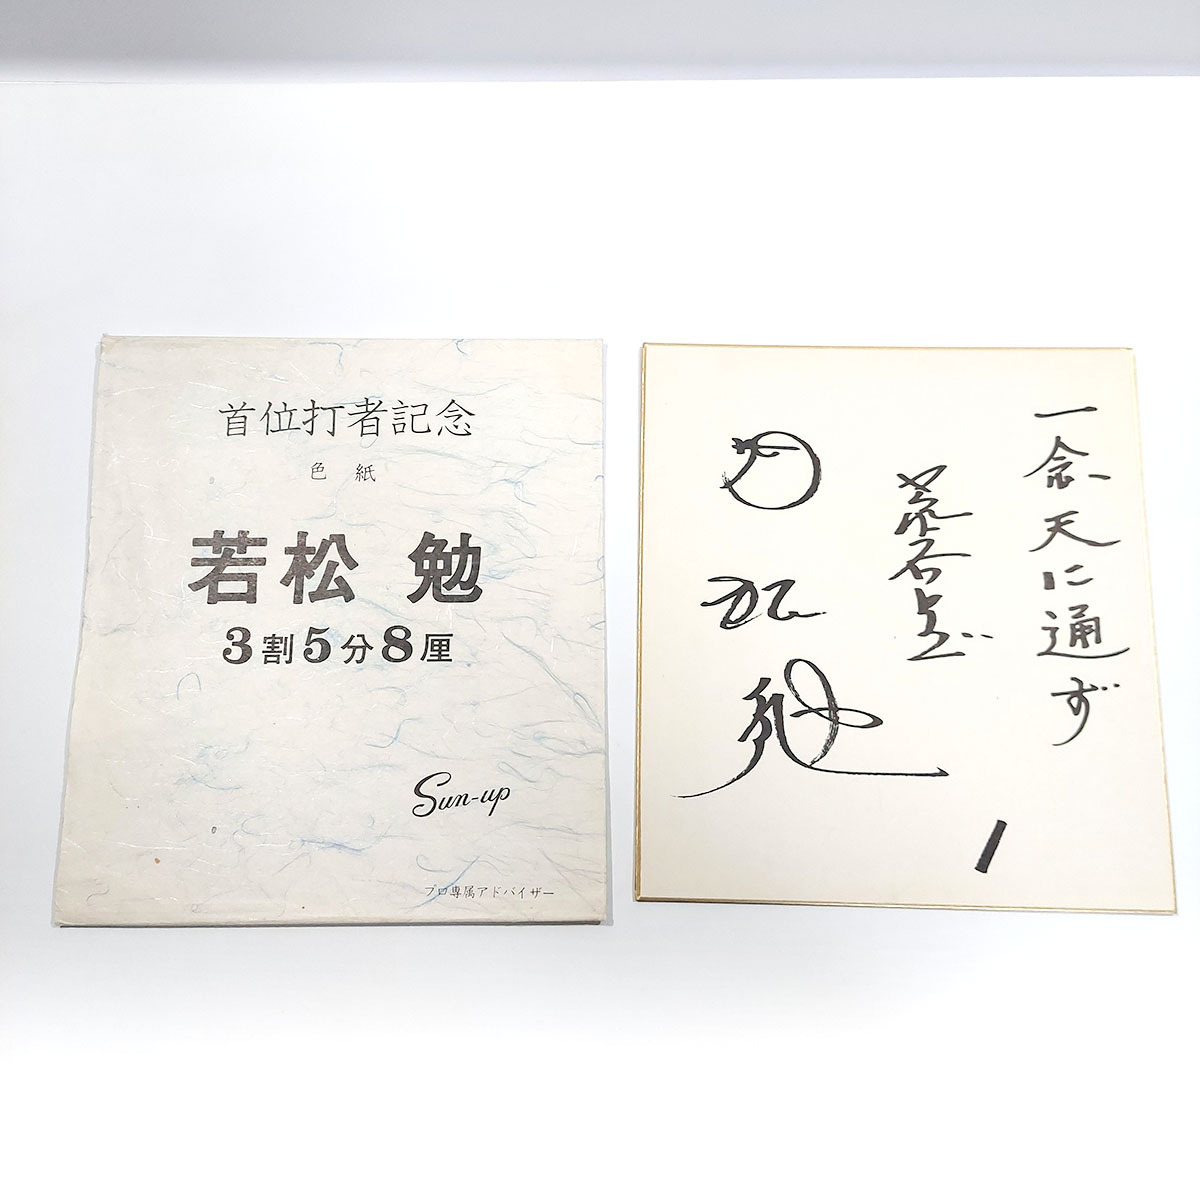 首位打者記念
色紙
若松 勉
3割5分8厘
Sun-up
プロ専属アドバイザー
一念天に通ず
1